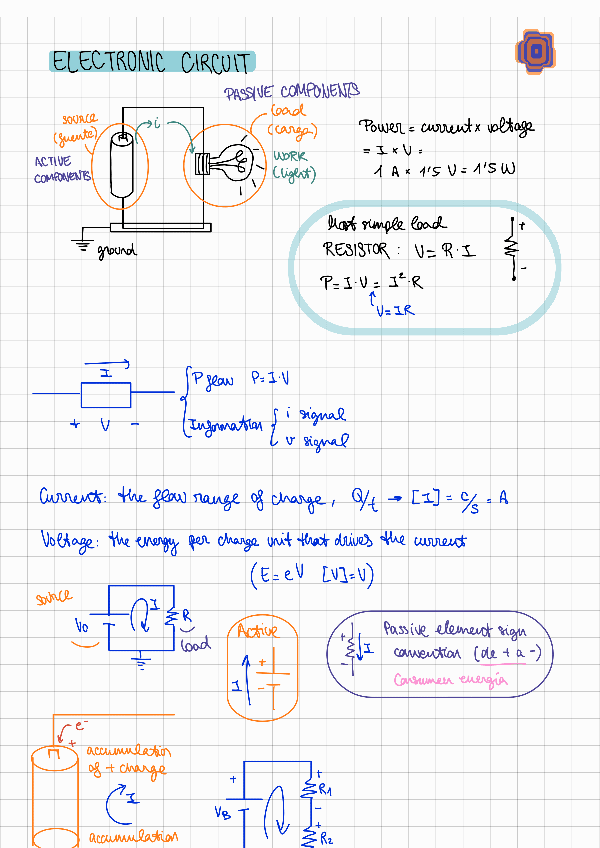 ELECTRONIC CIRCUIT
PASSIVE COMPONENTS
source
(fuente)
i
load
(carga)
ACTIVE
COMPONENTS
WORK
(light)
ground
Power = current x voltage
= I x V =
1 A x 1'5 V = 1'5 W
Most simple load
RESISTOR: V = R · I
P = I · V = I² · R
V = IR
+
-
I
+ V -
P flow P = I · V
Information
i signal
v signal
Current: the flow range of charge, Q/t → [I] = C/s = A
Voltage: the energy per charge unit that drives the current
(E = eV [V] = V)
source
Vo
I
R
load
Active
I
+
-
+
-
I
Passive element sign
convention (de + a -)
Consumeer energía
e-
+
accumulation
of + charge
I
accumulation
+
VB
-
+
R1
-
+
R2